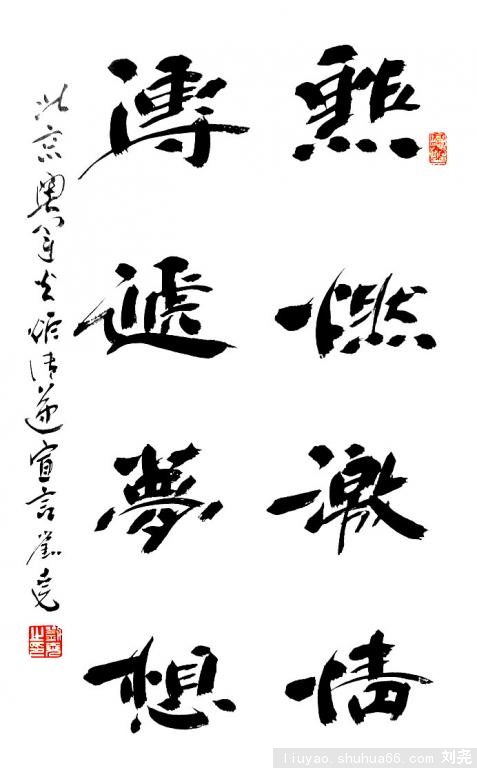 點燃激情
傳遞夢想
北京奧運火炬傳遞宣言 劉堯
liuyao.shuhua66.com 刘尧